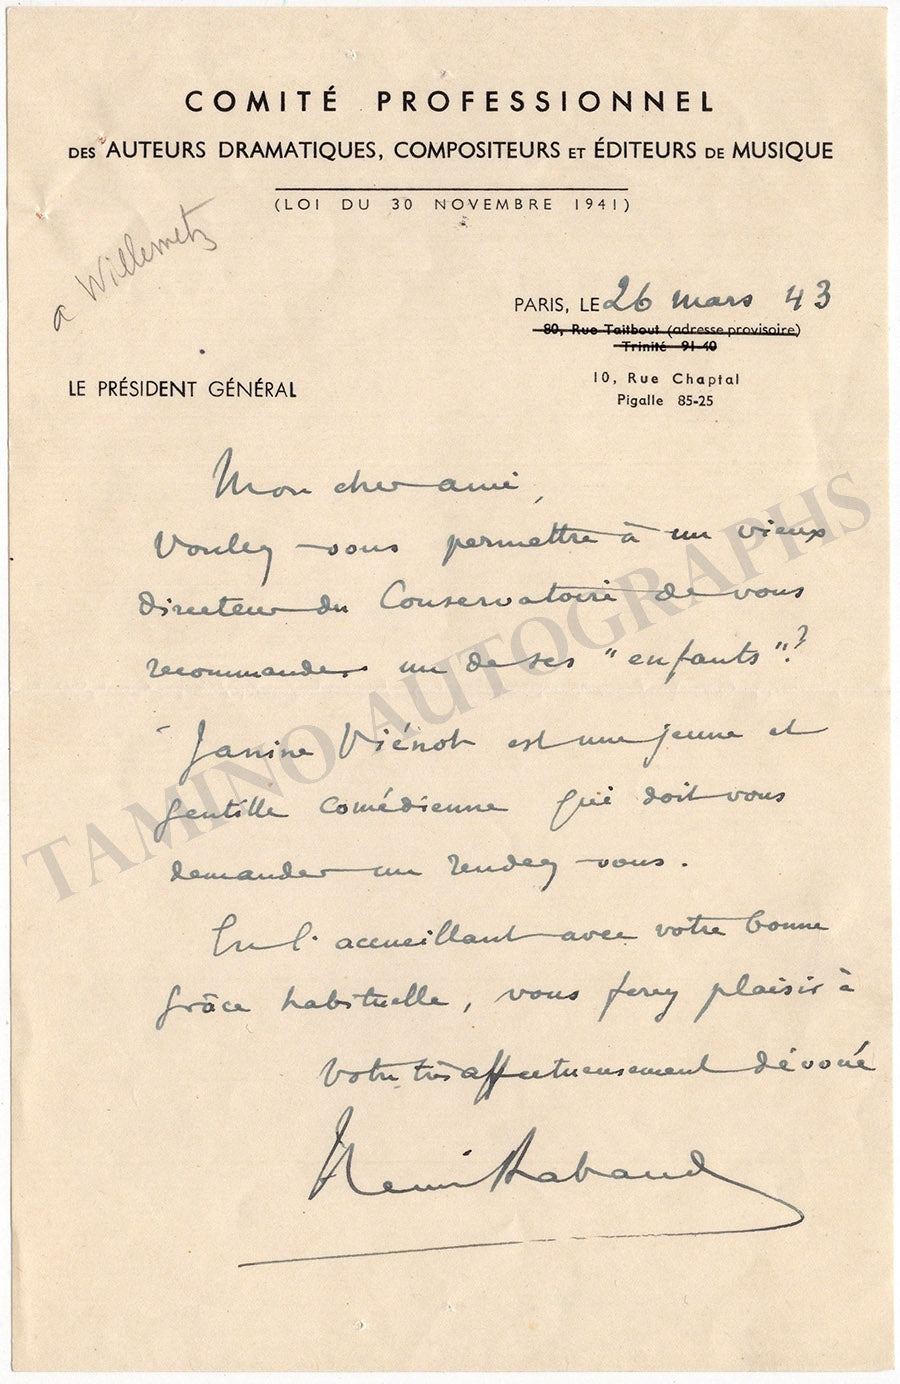 COMITÉ PROFESSIONNEL
DES AUTEURS DRAMATIQUES, COMPOSITEURS ET ÉDITEURS DE MUSIQUE
(LOI DU 30 NOVEMBRE 1941)
a Willemetz
PARIS, LE 26 mars 43
80, Rue Taitbout (adresse provisoire)
Trinité 91-40
10, Rue Chaptal
Pigalle 85-25
LE PRÉSIDENT GÉNÉRAL
Mon cher ami,
Voulez-vous permettre à un vieux
directeur du Conservatoire de vous
recommander un de ses "enfants"?
Janine Viénot est une jeune et
gentille comédienne qui doit vous
demander un rendez-vous.
En l'accueillant avec votre bonne
grâce habituelle, vous ferez plaisir à
votre très affectueusement dévoué
Henri Rabaud
TAMINO AUTOGRAPHS